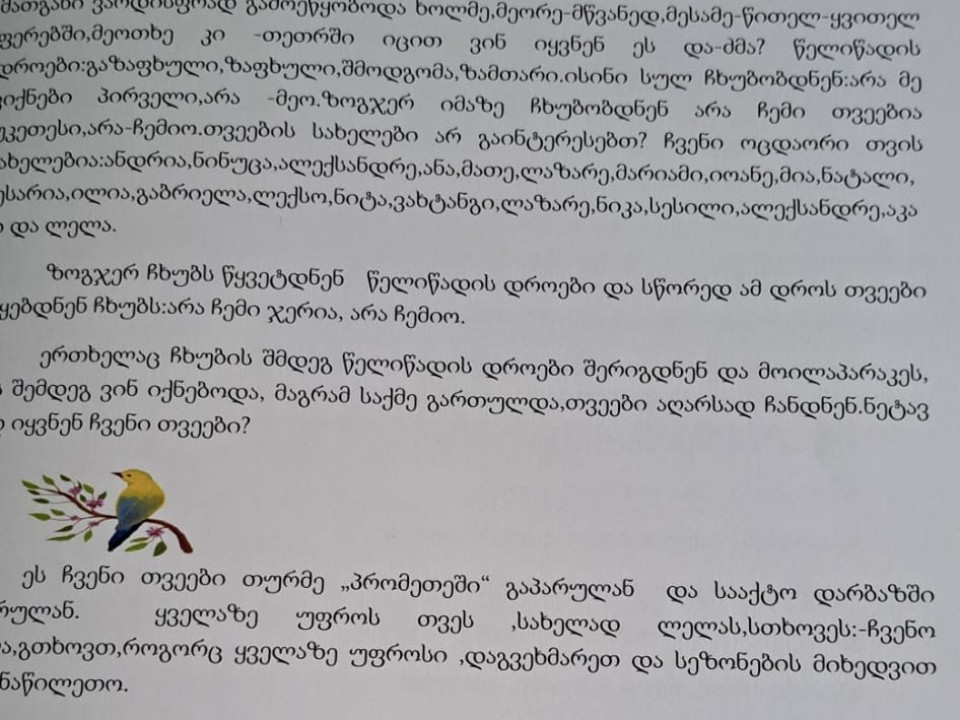 ვარდისფრად გამოეწყობოდა ხოლმე,მეორე-მწვანედ,მესამე-წითელ-ყვითელ
ფერებში,მეოთხე კი -თეთრში იცით ვინ იყვნენ ეს და-ძმა? წელიწადის
დროები:გაზაფხული,ზაფხული,შმოდგომა,ზამთარი.ისინი სულ ჩხუბობდნენ:არა მე
ვიქნები პირველი,არა -მეო.ზოგჯერ იმაზე ჩხუბობდნენ არა ჩემი თვეებია
უკეთესი,არა-ჩემიო.თვეების სახელები არ გაინტერესებთ? ჩვენი ოცდაორი თვის
ახელებია:ანდრია,ნინუცა,ალექსანდრე,ანა,მათე,ლაზარე,მარიამი,იოანე,მია,ნატალი,
ესარია,ილია,გაბრიელა,ლექსო,ნიტა,ვახტანგი,ლაზარე,ნიკა,სესილი,ალექსანდრე,აკა
და ლელა.
ზოგჯერ ჩხუბს წყვეტდნენ წელიწადის დროები და სწორედ ამ დროს თვეები
ყებდნენ ჩხუბს:არა ჩემი ჯერია, არა ჩემიო.
ერთხელაც ჩხუბის შმდეგ წელიწადის დროები შერიგდნენ და მოილაპარაკეს,
შემდეგ ვინ იქნებოდა, მაგრამ საქმე გართულდა,თვეები აღარსად ჩანდნენ.ნეტავ
იყვნენ ჩვენი თვეები?
ეს ჩვენი თვეები თურმე „პრომეთეში“ გაპარულან და სააქტო დარბაზში
რულან. ყველაზე უფროს თვეს ,სახელად ლელას,სთხოვეს:-ჩვენო
ა,გთხოვთ,როგორც ყველაზე უფროსი ,დაგვეხმარეთ და სეზონების მიხედვით
ნაწილეთო.